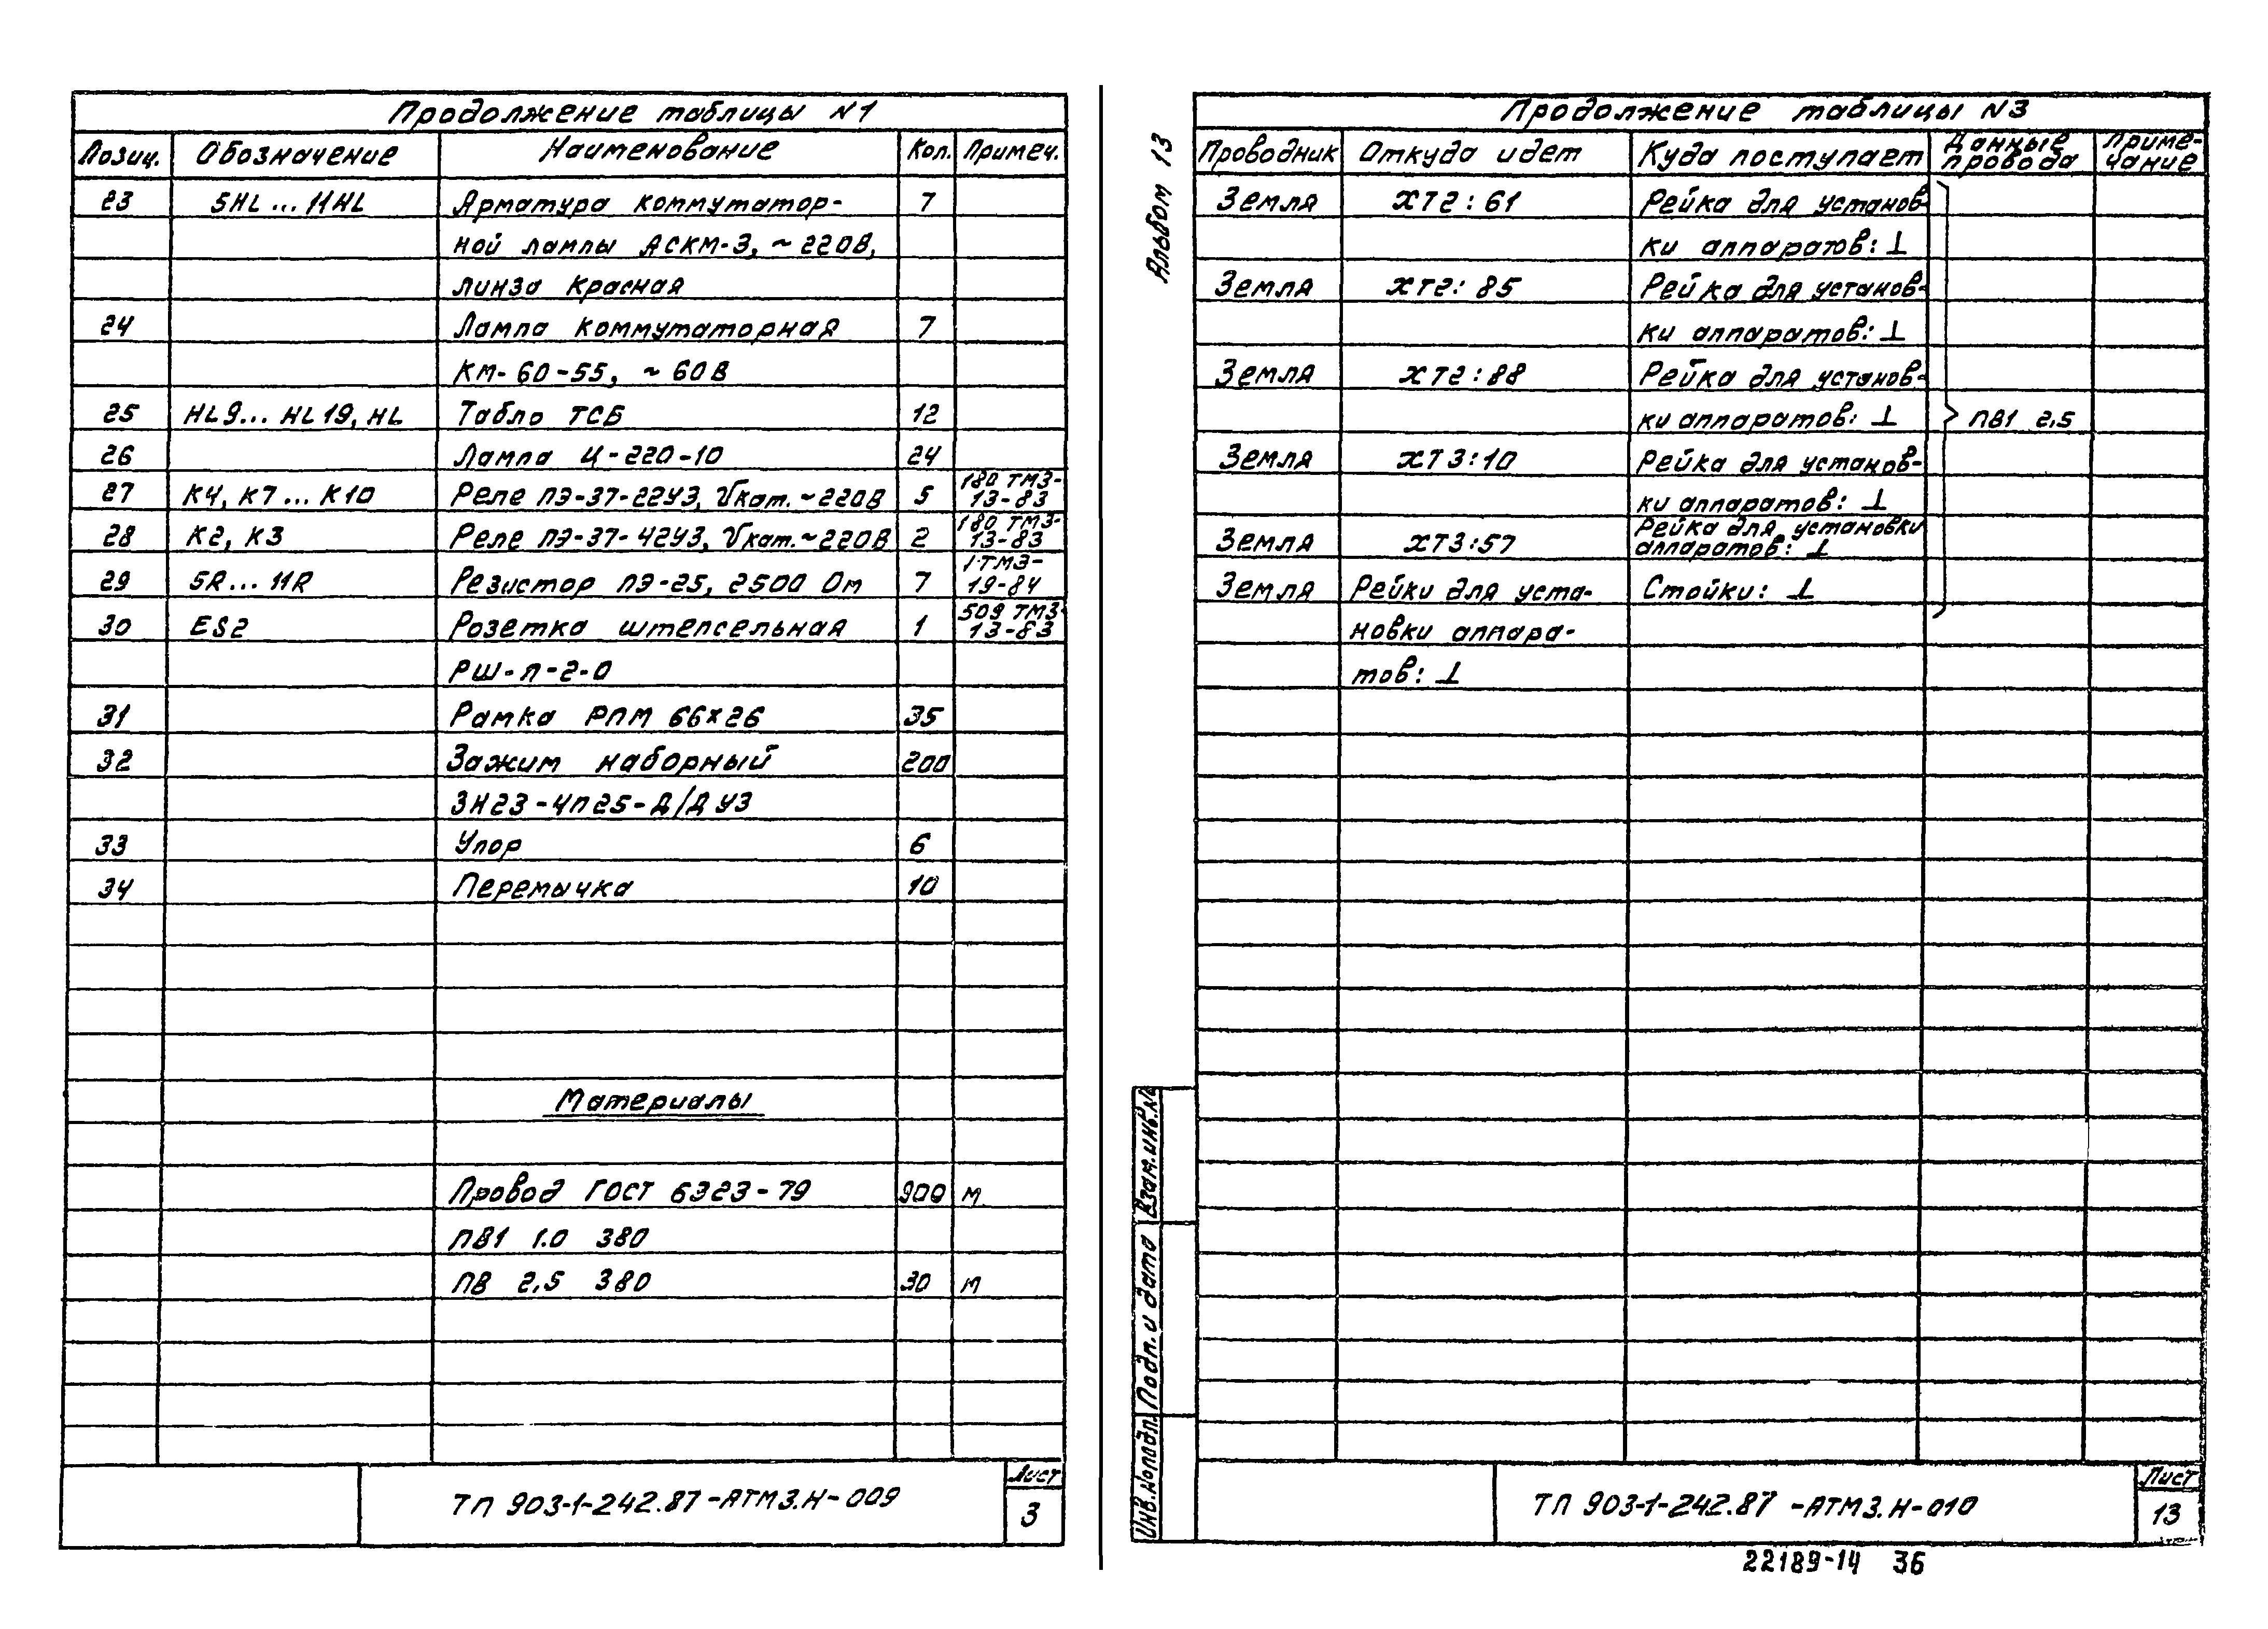 Продолжение таблицы N1
Позиц. Обозначение Наименование Кол. Примеч.
23 5HL ... 11HL Арматура коммутатор- 7
ной лампы АСКМ-3, ~ 220В,
линза красная
24 Лампа коммутаторная 7
КМ-60-55, ~ 60В
25 HL9... HL19, HL Табло ТСБ 12
26 Лампа Ц-220-10 24
27 К4, К7 ... К10 Реле ПЭ-37-22У3, Uкат.~220В 5 180 ТМ3-
13-83
28 К2, К3 Реле ПЭ-37-42У3, Uкат.~220В 2 180 ТМ3-
13-83
29 5R... 11R Резистор ПЭ-25, 2500 Ом 7 1ТМ3-
19-84
30 ES2 Розетка штепсельная 1 509 ТМ3-
13-83
РШ-п-2-0
31 Рамка РПМ 66×26 35
32 Зажим наборный 200
ЗН23-4П25-Д/Д У3
33 Упор 6
34 Перемычка 10
Материалы
Провод ГОСТ 6323-79 900 м
ПВ1 1.0 380
ПВ 2,5 380 30 м
ТП 903-1-242.87-АТМ3.Н-009
Лист
3
Альбом 13
Продолжение таблицы N3
Проводник Откуда идет Куда поступает Данные провода Приме-
чание
Земля ХТ2:61 Рейка для установ-
ки аппаратов: ⊥
Земля ХТ2:85 Рейка для установ-
ки аппаратов: ⊥
Земля ХТ2:88 Рейка для установ-
ки аппаратов: ⊥ ПВ1 2,5
Земля ХТ3:10 Рейка для установ-
ки аппаратов: ⊥
Земля ХТ3:57 Рейка для установки
аппаратов: ⊥
Земля Рейки для уста- Стойки: ⊥
новки аппара-
тов: ⊥
Инв.№подл. Подп. и дата Взам.инв.№
ТП 903-1-242.87-АТМ3.Н-010
Лист
13
22189-14 36